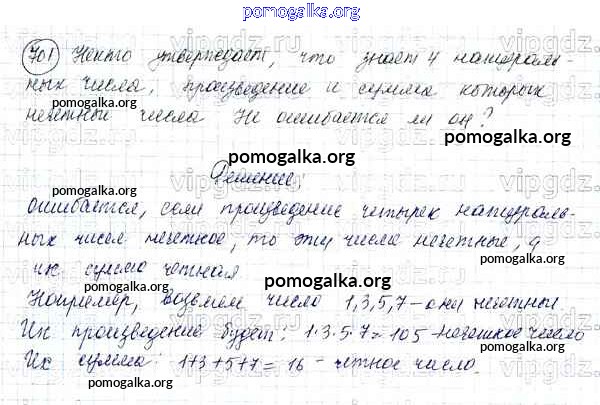 pomogalka.org
701 Некто утверждает, что знает 4 натураль-
ных числа, произведение и сумма которых
pomogalka.org
pomogalka.org
нечетные числа Не ошибается ли он?
pomogalka.org
Решение:
ошибается, если произведение четырех натураль-
ных чисел нечетное, то эти числа нечетные, а
pomogalka.org
их сумма четная
pomogalka.org
pomogalka.org
Например, возьмем числа 1,3,5,7 - они нечетные.
Их произведение будет: 1·3·5·7=105-нечетное число
Их сумма: 1+3+5+7= 16 - четное число.
pomogalka.org
pomogalka.org